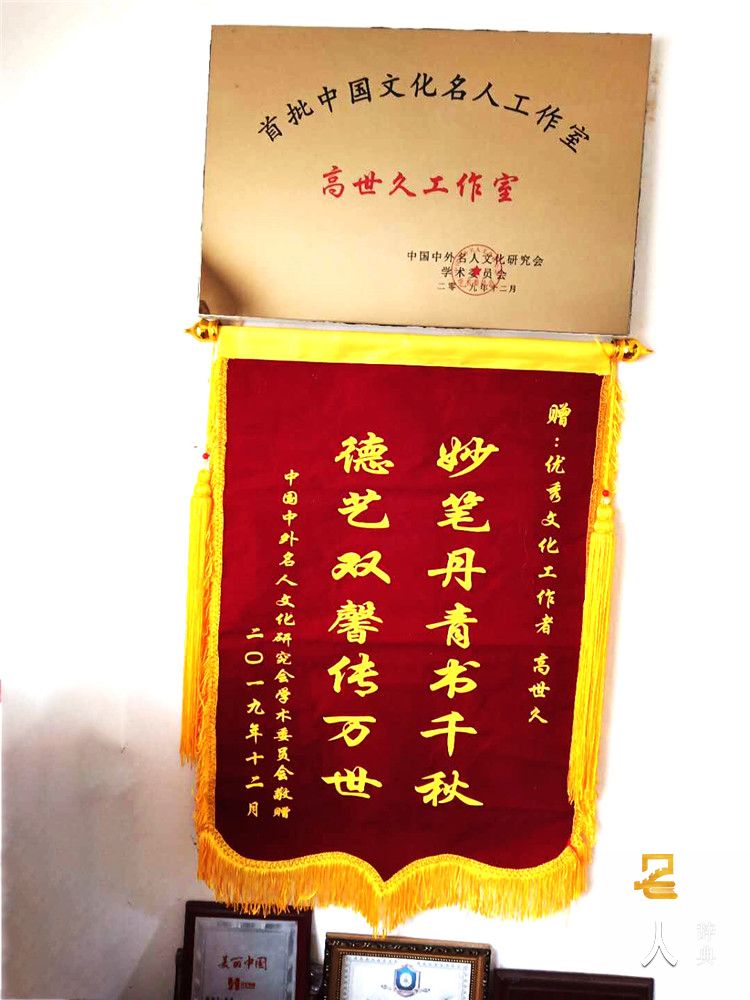 首批中国文化名人工作室
高世久工作室
中国中外名人文化研究会
学术委员会
二零一九年十二月
赠：优秀文化工作者 高世久
妙笔丹青书千秋
德艺双馨传万世
中国中外名人文化研究会学术委员会敬赠
二〇一九年十二月
美丽中国
人
辞典